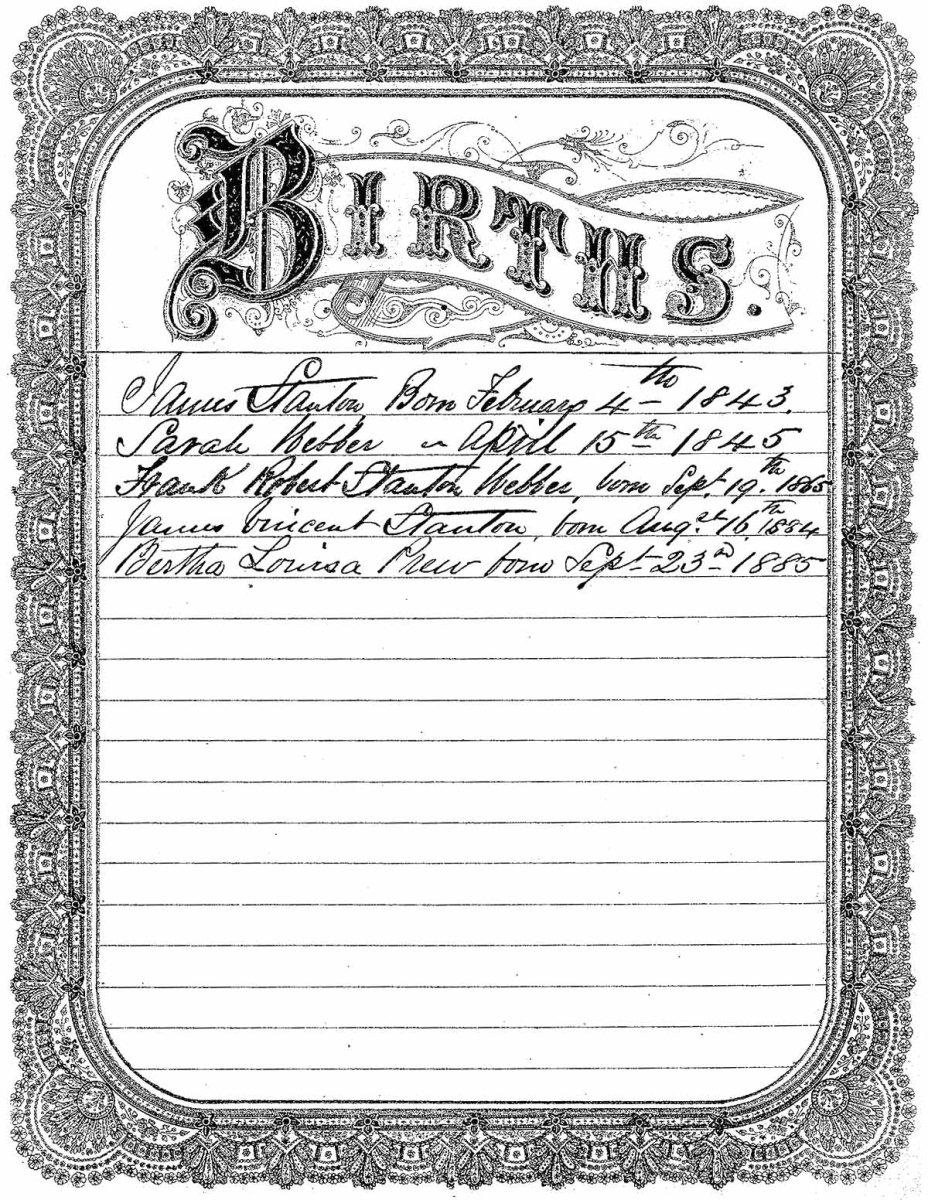 BIRTHS.
James Stanton Born February 4th 1843.
Sarah Webber " April 15th 1845
Frank Robert Stanton Webber, born Sept. 19.th 1865
James Vincent Stanton, born Aug.st 16th 1884
Bertha Louisa Prew born Sept 23rd 1885